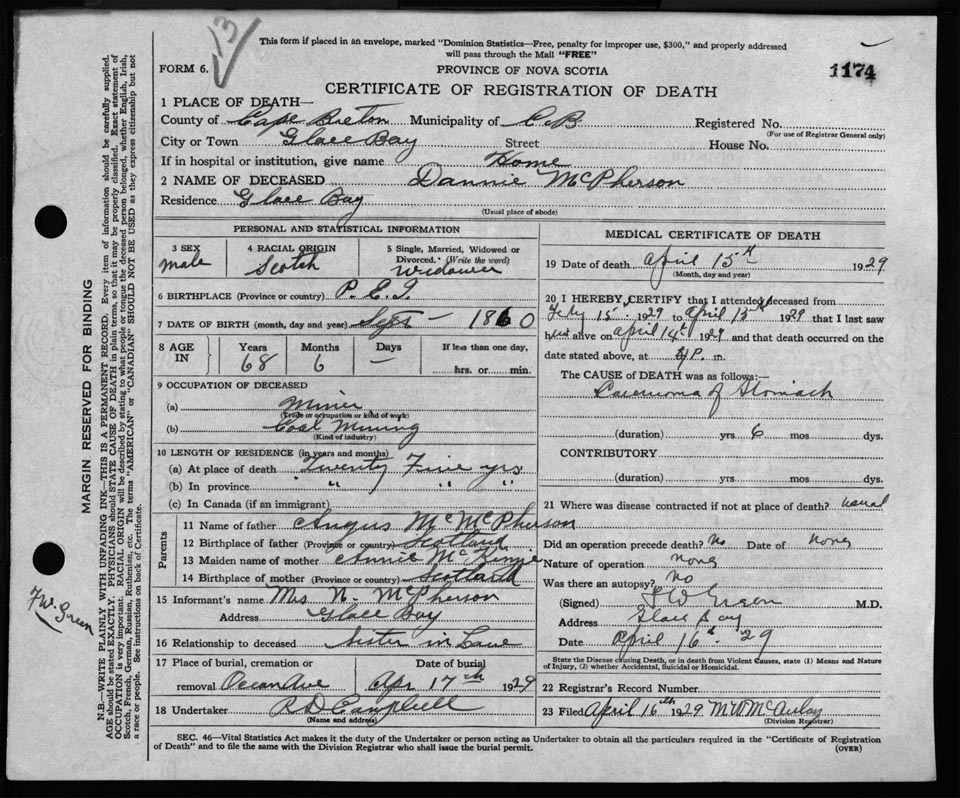 13
This form if placed in an envelope, marked "Dominion Statistics—Free, penalty for improper use, $300," and properly addressed
will pass through the Mail "FREE"
FORM 6.
PROVINCE OF NOVA SCOTIA
1174
CERTIFICATE OF REGISTRATION OF DEATH
1 PLACE OF DEATH—
County of Cape Breton Municipality of C.B. Registered No.
(For use of Registrar General only)
City or Town Glace Bay Street House No.
If in hospital or institution, give name Home
2 NAME OF DECEASED Dannie McPherson
Residence Glace Bay
(Usual place of abode)
PERSONAL AND STATISTICAL INFORMATION
3 SEX male
4 RACIAL ORIGIN Scotch
5 Single, Married, Widowed or Divorced. (Write the word) Widower
6 BIRTHPLACE (Province or country) P.E.I.
7 DATE OF BIRTH (month, day and year) Sept — 1860
8 AGE IN Years Months Days If less than one day,
68 6 — hrs. or min.
9 OCCUPATION OF DECEASED
(a) Miner
(Trade or occupation or kind of work)
(b) Coal Mining
(Kind of industry)
10 LENGTH OF RESIDENCE (in years and months)
(a) At place of death Twenty Five yrs
(b) In province " " " "
(c) In Canada (if an immigrant)
Parents
11 Name of father Angus Mc McPherson
12 Birthplace of father (Province or country) Scotland
13 Maiden name of mother Annie McKinnie
14 Birthplace of mother (Province or country) Scotland
15 Informant's name Mrs N. McPherson
Address Glace Bay
16 Relationship to deceased Sister in Law
17 Place of burial, cremation or Date of burial
removal Ocean Ave Apr 17th 1929
18 Undertaker R D Campbell
(Name and address)
MEDICAL CERTIFICATE OF DEATH
19 Date of death April 15th 1929
(Month, day and year)
20 I HEREBY CERTIFY that I attended deceased from
Feby 15 1929 to April 15th 1929 that I last saw
him alive on April 14th 1929 and that death occurred on the
date stated above, at P. m.
The CAUSE of DEATH was as follows:—
Carcinoma of Stomach
(duration) yrs 6 mos dys.
CONTRIBUTORY
(duration) yrs mos dys.
21 Where was disease contracted if not at place of death? usual
Did an operation precede death? No Date of none
Nature of operation none
Was there an autopsy? No
(Signed) F W Green M.D.
Address Glace Bay
Date April 16th 29
State the Disease causing Death, or in death from Violent Causes, state (1) Means and Nature
of Injury, (2) whether Accidental, Suicidal or Homicidal.
22 Registrar's Record Number
23 Filed April 16th 1929 M W McAulay
(Division Registrar)
SEC. 46—Vital Statistics Act makes it the duty of the Undertaker or person acting as Undertaker to obtain all the particulars required in the "Certificate of Registration
of Death" and to file the same with the Division Registrar who shall issue the burial permit.
(OVER)
MARGIN RESERVED FOR BINDING
N.B.—WRITE PLAINLY WITH UNFADING INK—THIS IS A PERMANENT RECORD. Every item of information should be carefully supplied.
AGE should be stated EXACTLY. PHYSICIANS should STATE CAUSE OF DEATH in plain terms, so that it may be properly classified. Exact statement of
OCCUPATION is very important. RACIAL ORIGIN will be described by stating to what people or tongue the deceased person belonged, whether English, Irish,
Scotch, French, German, Russian, Ruthenian, etc. The terms "AMERICAN" or "CANADIAN" SHOULD NOT BE USED as they express citizenship but not
a race or people. See instructions on back of Certificate.
F W. Green